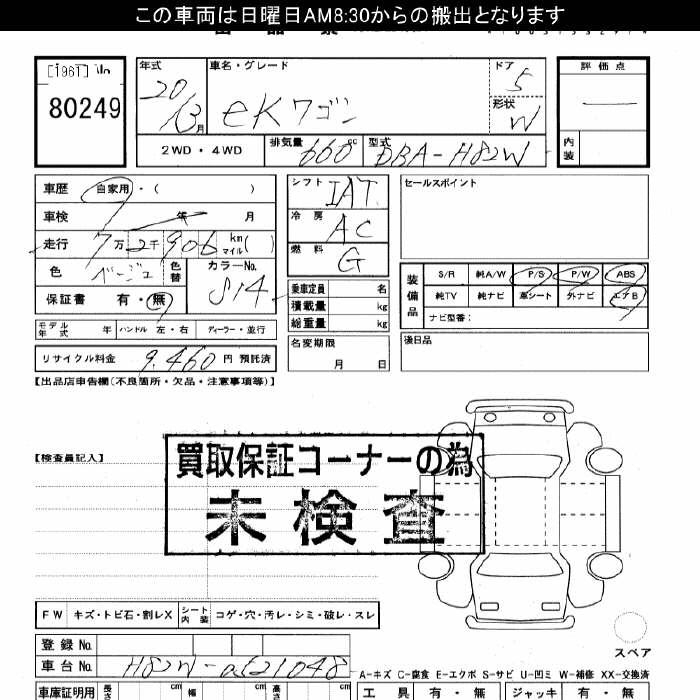 この車両は日曜日AM8:30からの搬出となります
[1961]
80249
年式
20
13月
車名・グレード
eKワゴン
ドア
5
形状
W
評価点
内装
2WD・4WD
排気量
660cc
型式
DBA-H82W
車歴 自家用・( )
車検 年 月
走行 7万2千906 km マイル( )
色 ベージュ
色替
カラーNo.
S14
保証書 有・無
シフト
IAT
冷房
AC
燃料
G
乗車定員 名
積載量 kg
総重量 kg
名変期限
月 日
セールスポイント
装備品
S/R 純A/W P/S P/W ABS
純TV 純ナビ 革シート 外ナビ エアB
ナビ型番:
後日品
モデル年式 年 ハンドル 左・右 ディーラー・並行
リサイクル料金 9,460 円 預託済
【出品店申告欄(不良箇所・欠品・注意事項等)】
【検査員記入】
買取保証コーナーの為
未検査
FW キズ・トビ石・割レX シート内装 コゲ・穴・汚レ・シミ・破レ・スレ
スペア
登録No.
車台No. H82W-
A-キズ C-腐食 E-エクボ S-サビ U-凹ミ W-補修 XX-交換済
車庫証明用 長さ cm 幅 cm 高さ cm
工具 有・無 ジャッキ 有・無